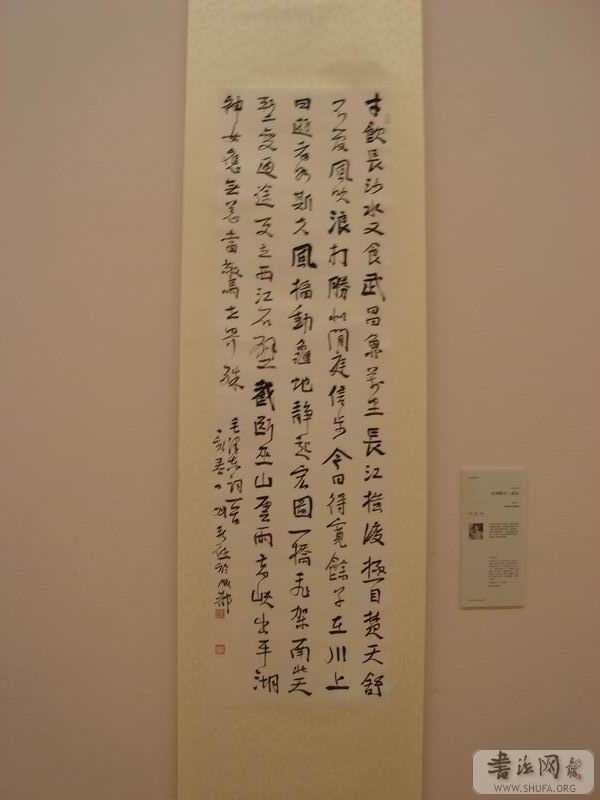 才飲長沙水又食武昌魚萬里長江橫渡極目楚天舒
不管風吹浪打勝似閒庭信步今日得寬餘子在川上
曰逝者如斯夫風檣動龜蛇靜起宏圖一橋飛架南北天
塹變通途更立西江石壁截斷巫山雲雨高峽出平湖
神女應無恙當驚世界殊
毛澤東詞一首
於成都
書法网
WWW.SHUFA.ORG